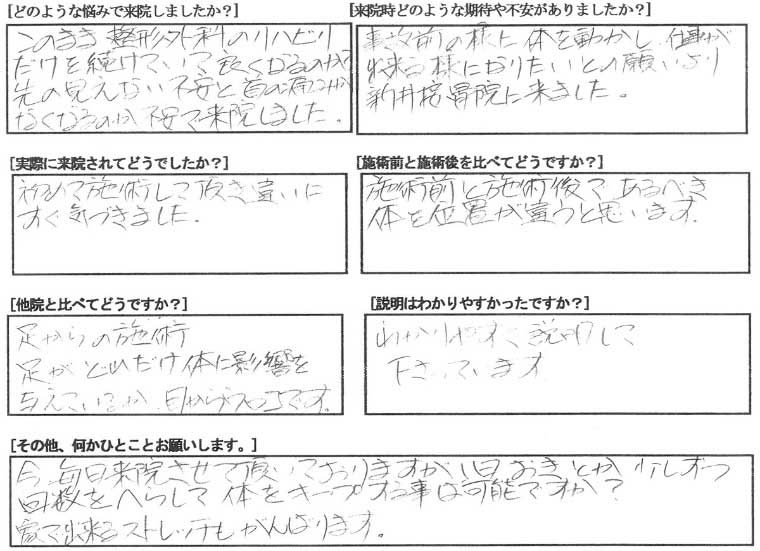 [どのような悩みで来院しましたか？]
このまま整形外科のリハビリ
だけを続けていて良くなるのか？
先の見えない不安と首の痛みが
なくなるのか不安で来院しました。
[来院時どのような期待や不安がありましたか？]
事故前の様に体を動かし仕事が
出来る様になりたいとの願いより
新井接骨院に来ました。
[実際に来院されてどうでしたか？]
初めて施術して頂き違いに
すぐ気づきました.
[施術前と施術後を比べてどうですか？]
施術前と施術後で あるべき
体を位置が違うと思います.
[他院と比べてどうですか？]
足からの施術
足がどれだけ体に影響を
与えているか、目からうろこです。
[説明はわかりやすかったですか？]
わかりやすく説明して
下さっています
[その他、何かひとことお願いします。]
今、毎日来院させて頂いておりますが1日おきとか 少しずつ
回数をへらして体をキープする事は可能ですか？
家で出来るストレッチもがんばります。